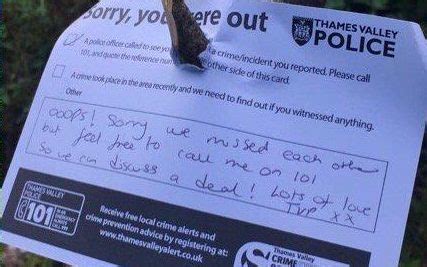 Sorry, you were out
THAMES VALLEY
POLICE
A police officer called to see you a crime/incident you reported. Please call
101, and quote the reference num other side of this card.
A crime took place in the area recently and we need to find out if you witnessed anything.
Other
OOOPS! Sorry we missed each other
but feel free to call me on 101
so we can discuss a deal! Lots of love
TVP xx
THAMES VALLEY
POLICE
101
Receive free local crime alerts and
crime prevention advice by registering at:
www.thamesvalleyalert.co.uk
Thames Valley
CRIME